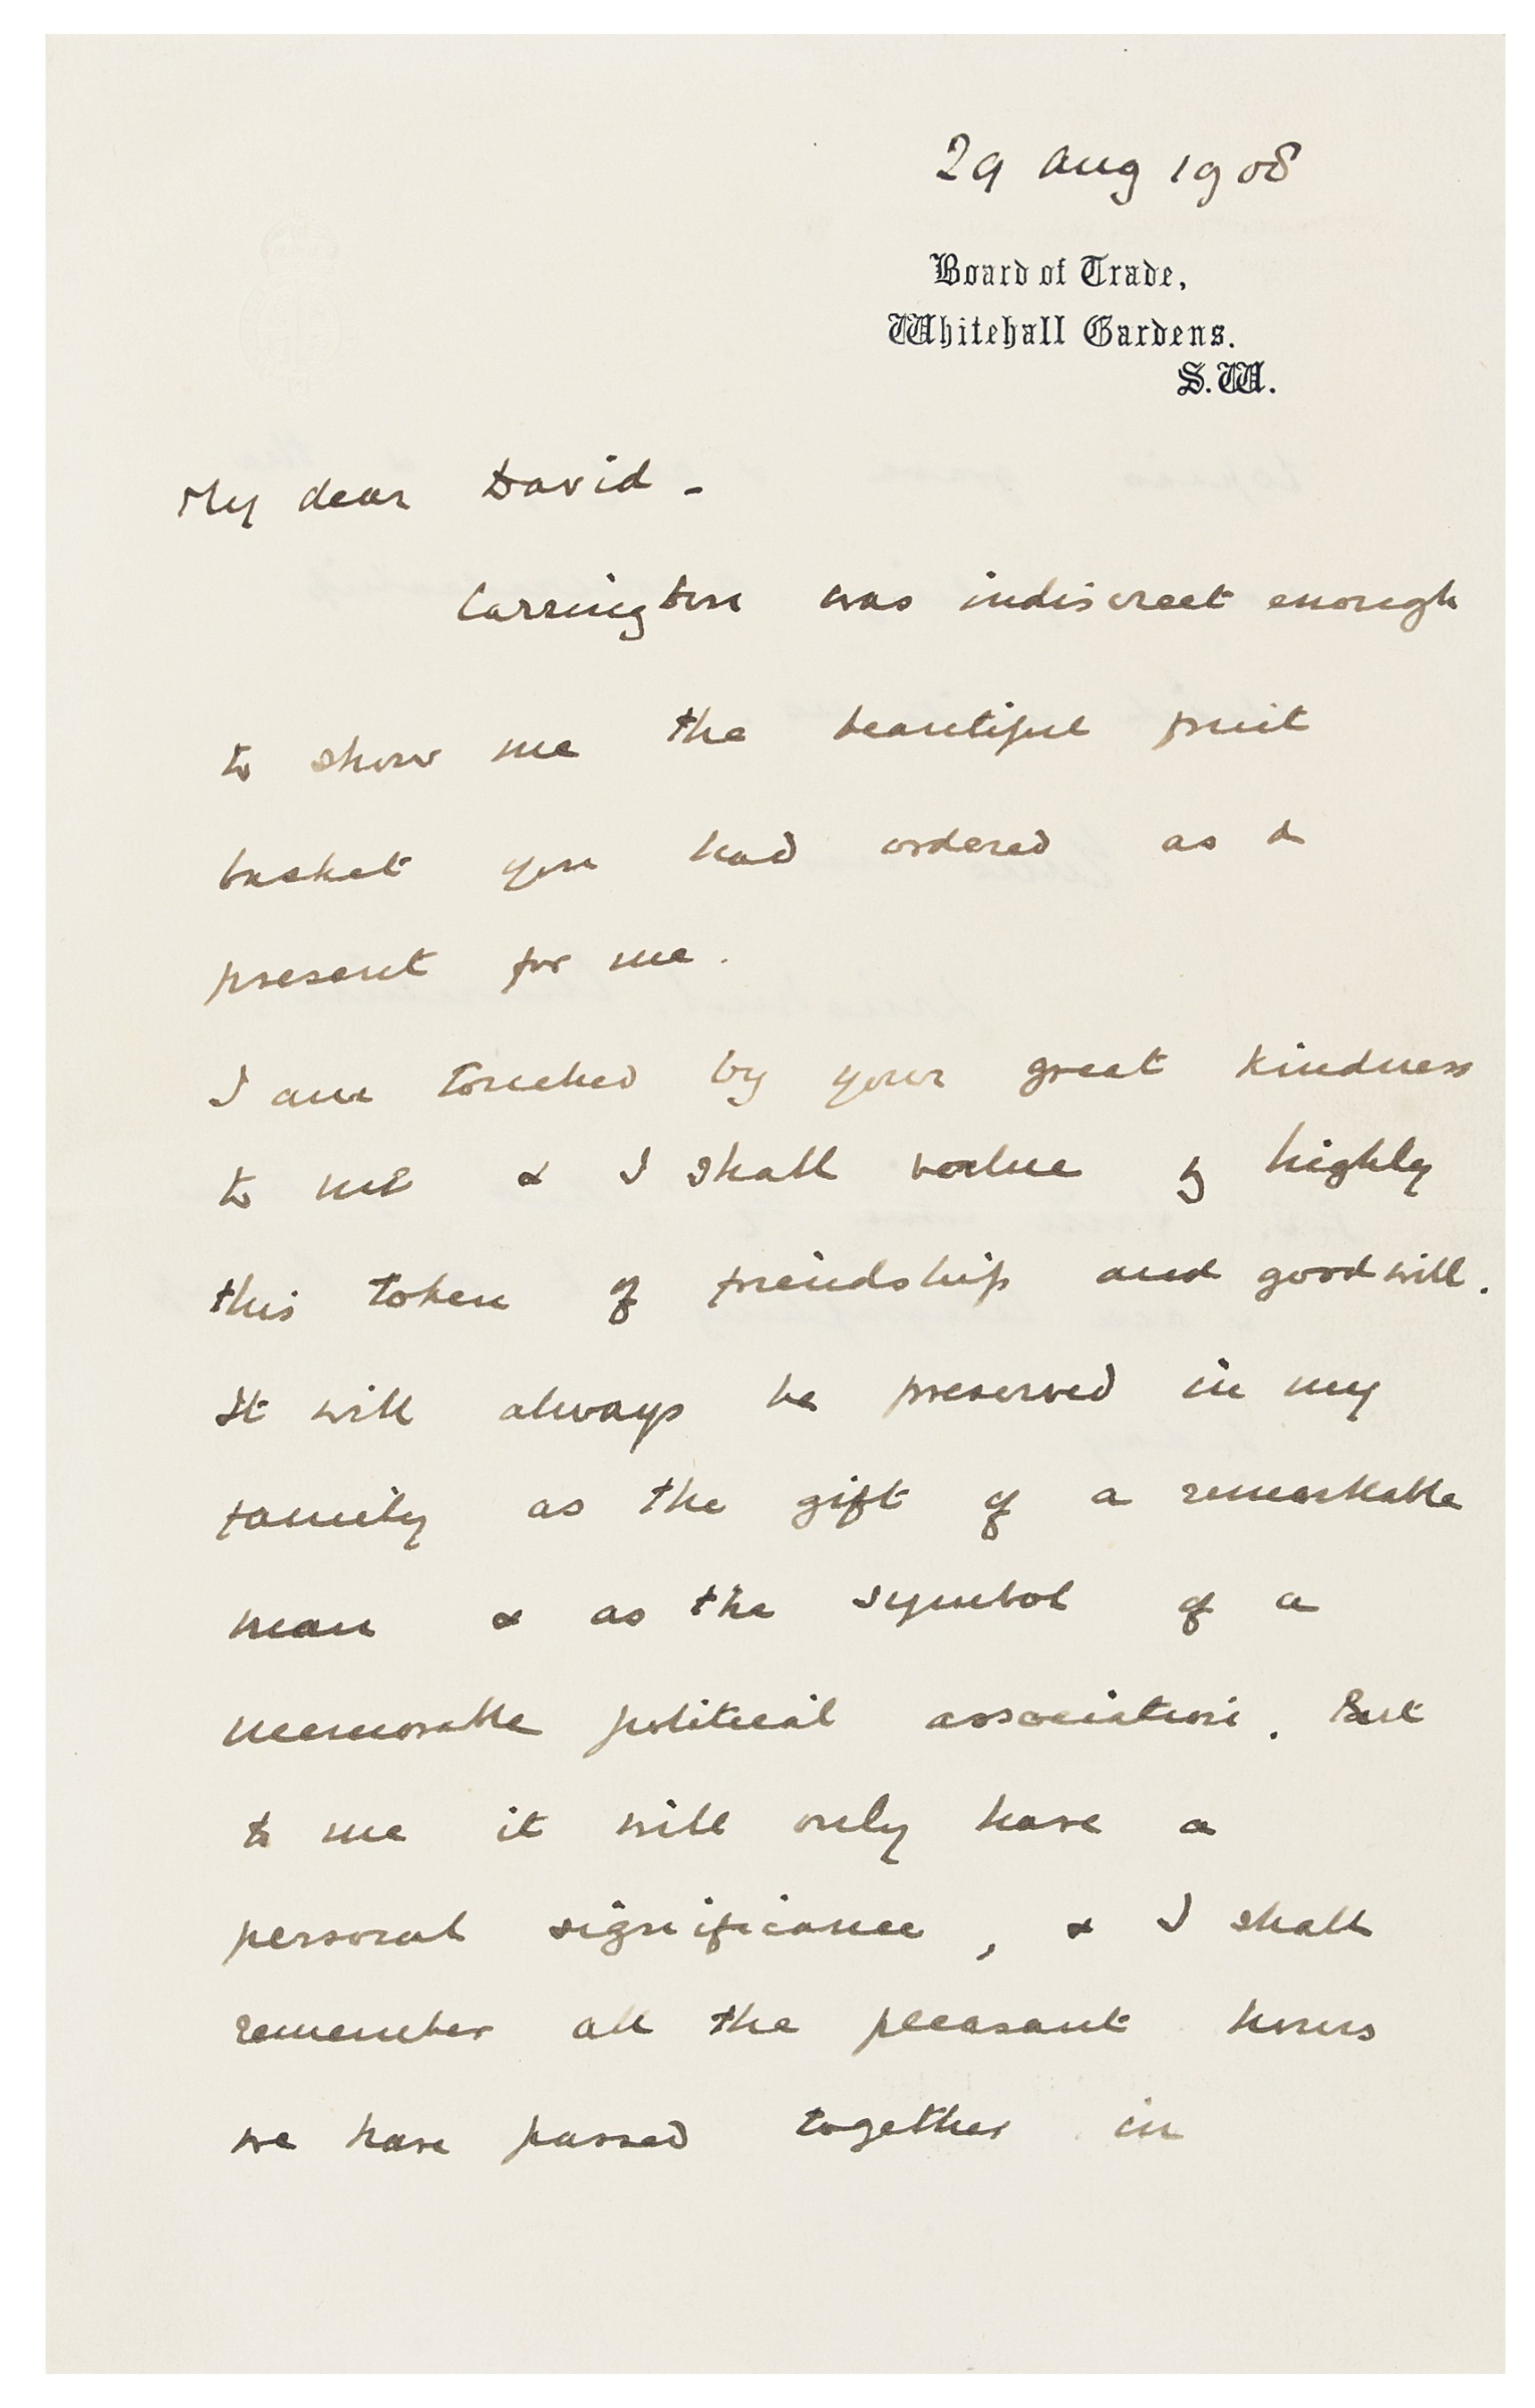 29 Aug 1908
Board of Trade,
Whitehall Gardens.
S.W.
My dear David -
Carrington was indiscreet enough
to show me the beautiful fruit
basket you had ordered as a
present for me.
I am touched by your great kindness
to me & I shall value highly
this token of friendship and goodwill.
It will always be preserved in my
family as the gift of a remarkable
man & as the symbol of a
memorable political association. But
to me it will only have a
personal significance, & I shall
remember all the pleasant hours
we have passed together in